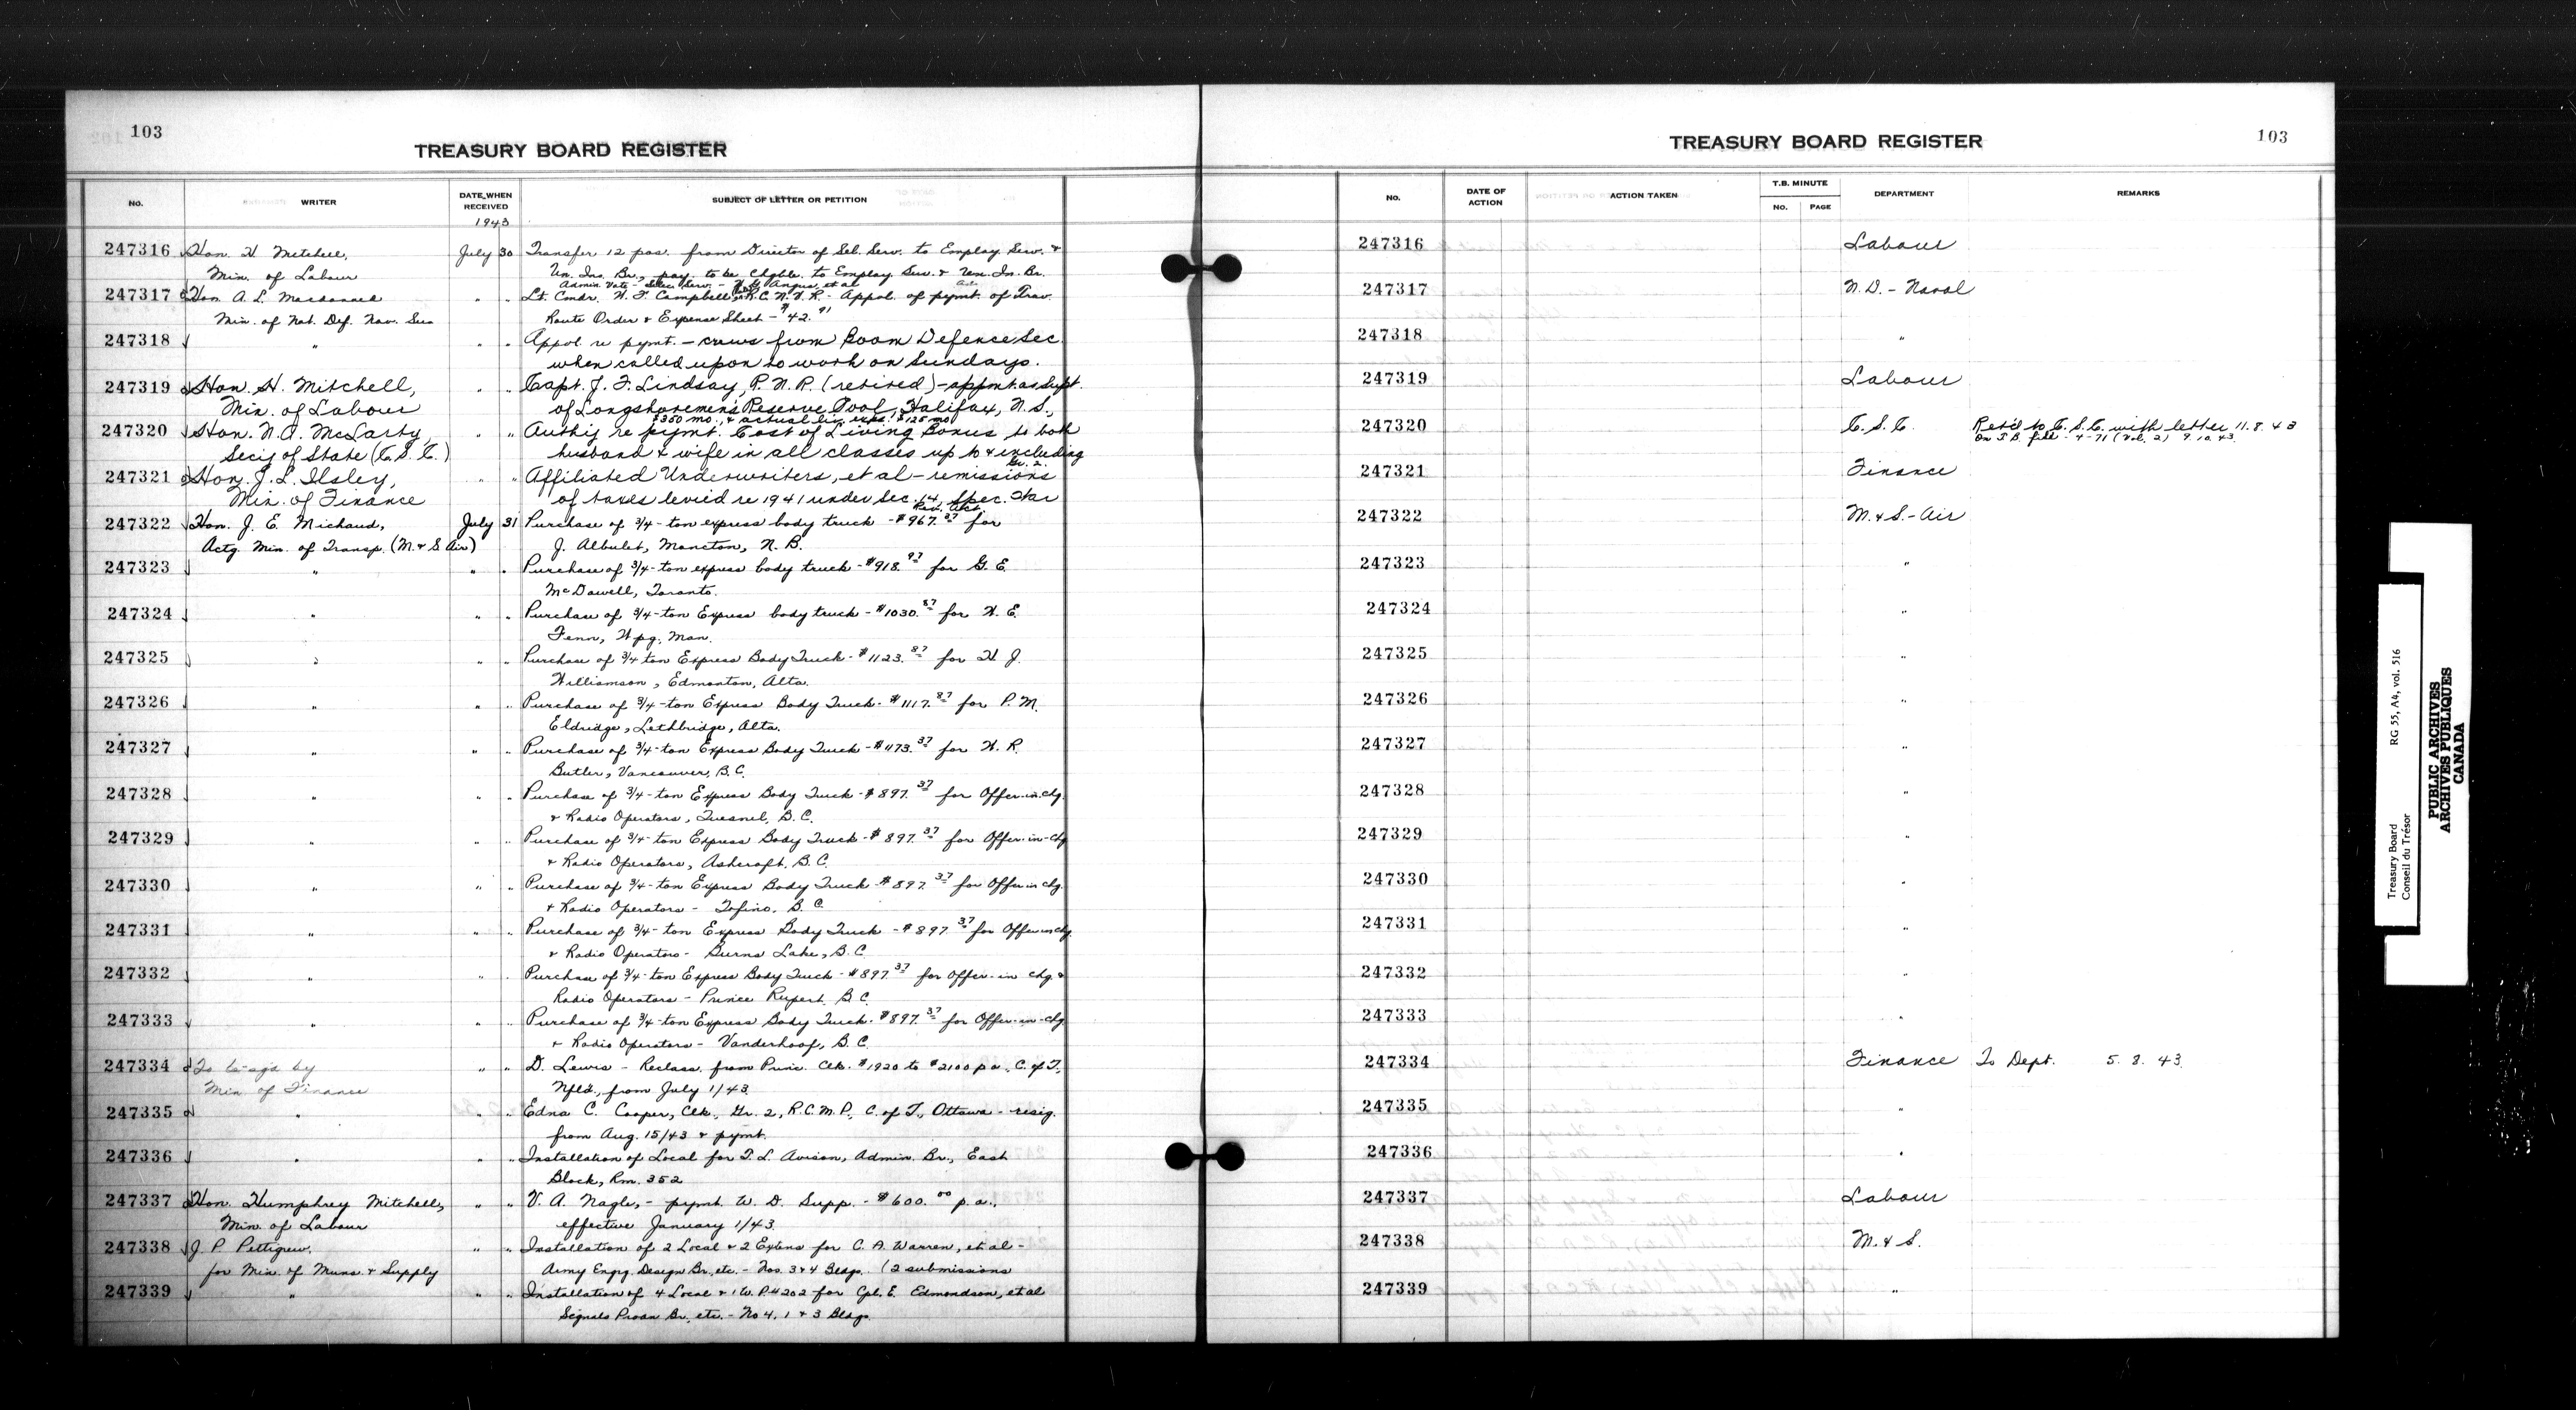 103
TREASURY BOARD REGISTER
No.
WRITER
DATE WHEN RECEIVED
SUBJECT OF LETTER OR PETITION
1943
247316 Hon. H. Mitchell, July 30 Transfer 12 pos. from Director of Sel. Serv. to Employ. Serv. &
Min. of Labour Un. Ins. Br., pay. to be chgble. to Employ. Serv. & Un. In. Br.
Admin. Vote - Selec. Serv. - Angus, et al
247317 Hon. A. L. Macdonald " " Lt. Comdr. W. F. Campbell, R.C.N.V.R. - Appol. of pymt. of Trav.
Min. of Nat. Def. Nav. Ser. Route Order & Expense Sheet - $42.91
247318 " " " Appol. re pymt. - crews from Boom Defence Sec.
when called upon to work on Sundays.
247319 Hon. H. Mitchell, " " Capt. J. F. Lindsay, R.N.R. (retired) - appmt. as Supt.
Min. of Labour of Longshoremen's Reserve Pool, Halifax, N.S.,
$350 mo., & actual liv. exps. $125 mo.
247320 Hon. N.A. McLarty, " " Authy re pymt. Cost of Living Bonus to both
Sec'y of State (C.S.C.) husband & wife in all classes up to & excluding
Gr. 2.
247321 Hon. J. L. Ilsley, " " Affiliated Underwriters, et al - remissions
Min. of Finance of taxes levied re 1941 under Sec. 14, Spec. War
Rev. Act.
247322 Hon. J. E. Michaud, July 31 Purchase of 3/4-ton express body truck - $967.37 for
Actg. Min. of Transp. (M. & S. Air) J. Albulet, Moncton, N.B.
247323 " " " Purchase of 3/4-ton express body truck - $918.97 for G. E.
McDowell, Toronto.
247324 " " " Purchase of 3/4-ton Express body truck - $1030.87 for W. E.
Fenn, Wpg. Man.
247325 " " " Purchase of 3/4 ton Express Body Truck - $1123.87 for H. J.
Williamson, Edmonton, Alta.
247326 " " " Purchase of 3/4-ton Express Body Truck - $1117.87 for P. M.
Eldridge, Lethbridge, Alta.
247327 " " " Purchase of 3/4-ton Express Body Truck - $1173.37 for W. R.
Butler, Vancouver, B.C.
247328 " " " Purchase of 3/4-ton Express Body Truck - $897.37 for Offcr.-in-chg.
& Radio Operators, Quesnel, B.C.
247329 " " " Purchase of 3/4-ton Express Body Truck - $897.37 for Offcr.-in-chg
& Radio Operators, Ashcroft, B.C.
247330 " " " Purchase of 3/4-ton Express Body Truck - $897.37 for Offcr in chg.
& Radio Operators - Tofino, B.C.
247331 " " " Purchase of 3/4-ton Express Body Truck - $897.37 for Offcr in chg.
& Radio Operators - Burns Lake, B.C.
247332 " " " Purchase of 3/4-ton Express Body Truck - $897.37 for Offcr.-in chg. &
Radio Operators - Prince Rupert, B.C.
247333 " " " Purchase of 3/4-ton Express Body Truck - $897.37 for Offcr.-in-chg
& Radio Operators - Vanderhoof, B.C.
247334 To be sgd by " " D. Lewis - Reclass. from Princ. Clk. $1920 to $2100 p.a., C. of T.,
Min of Finance Nfld., from July 1/43.
247335 " " " Edna C. Cooper, Clk., Gr. 2, R.C.M.P., C. of T., Ottawa - resig.
from Aug. 15/43 & pymt.
247336 " " " Installation of Local for T. L. Avison, Admin. Br., East
Block, Rm. 352
247337 Hon. Humphrey Mitchell, " " V. A. Nagle, - pymt. W. D. Supp. - $600.00 p.a.,
Min. of Labour effective January 1/43.
247338 J. P. Pettigrew, " " Installation of 2 Local & 2 Extens for C. A. Warren, et al -
for Min. of Muns & Supply Army Engrg. Design Br., etc. - Nos. 3 & 4 Bldgs. (2 submissions
247339 " " " Installation of 4 Local & 1 W.P. #202 for Cpl. E. Edmondson, et al
Signals Prodn Br., etc. - No 4, 1 & 3 Bldgs.
TREASURY BOARD REGISTER
103
No.
DATE OF ACTION
ACTION TAKEN
T.B. MINUTE
No.
PAGE
DEPARTMENT
REMARKS
247316 Labour
247317 N.D. - Naval
247318 "
247319 Labour
247320 C.S.C. Ret'd to C.S.C. with letter 11.8.43
On T.B. file - 4-71 (vol. 2) 9.10.43
247321 Finance
247322 M. & S. - Air
247323 "
247324 "
247325 "
247326 "
247327 "
247328 "
247329 "
247330 "
247331 "
247332 "
247333 "
247334 Finance To Dept. 5.8.43
247335 "
247336 "
247337 Labour
247338 M. & S.
247339 "
Treasury Board RG 55, A4, vol. 516
Conseil du Trésor
PUBLIC ARCHIVES
ARCHIVES PUBLIQUES
CANADA